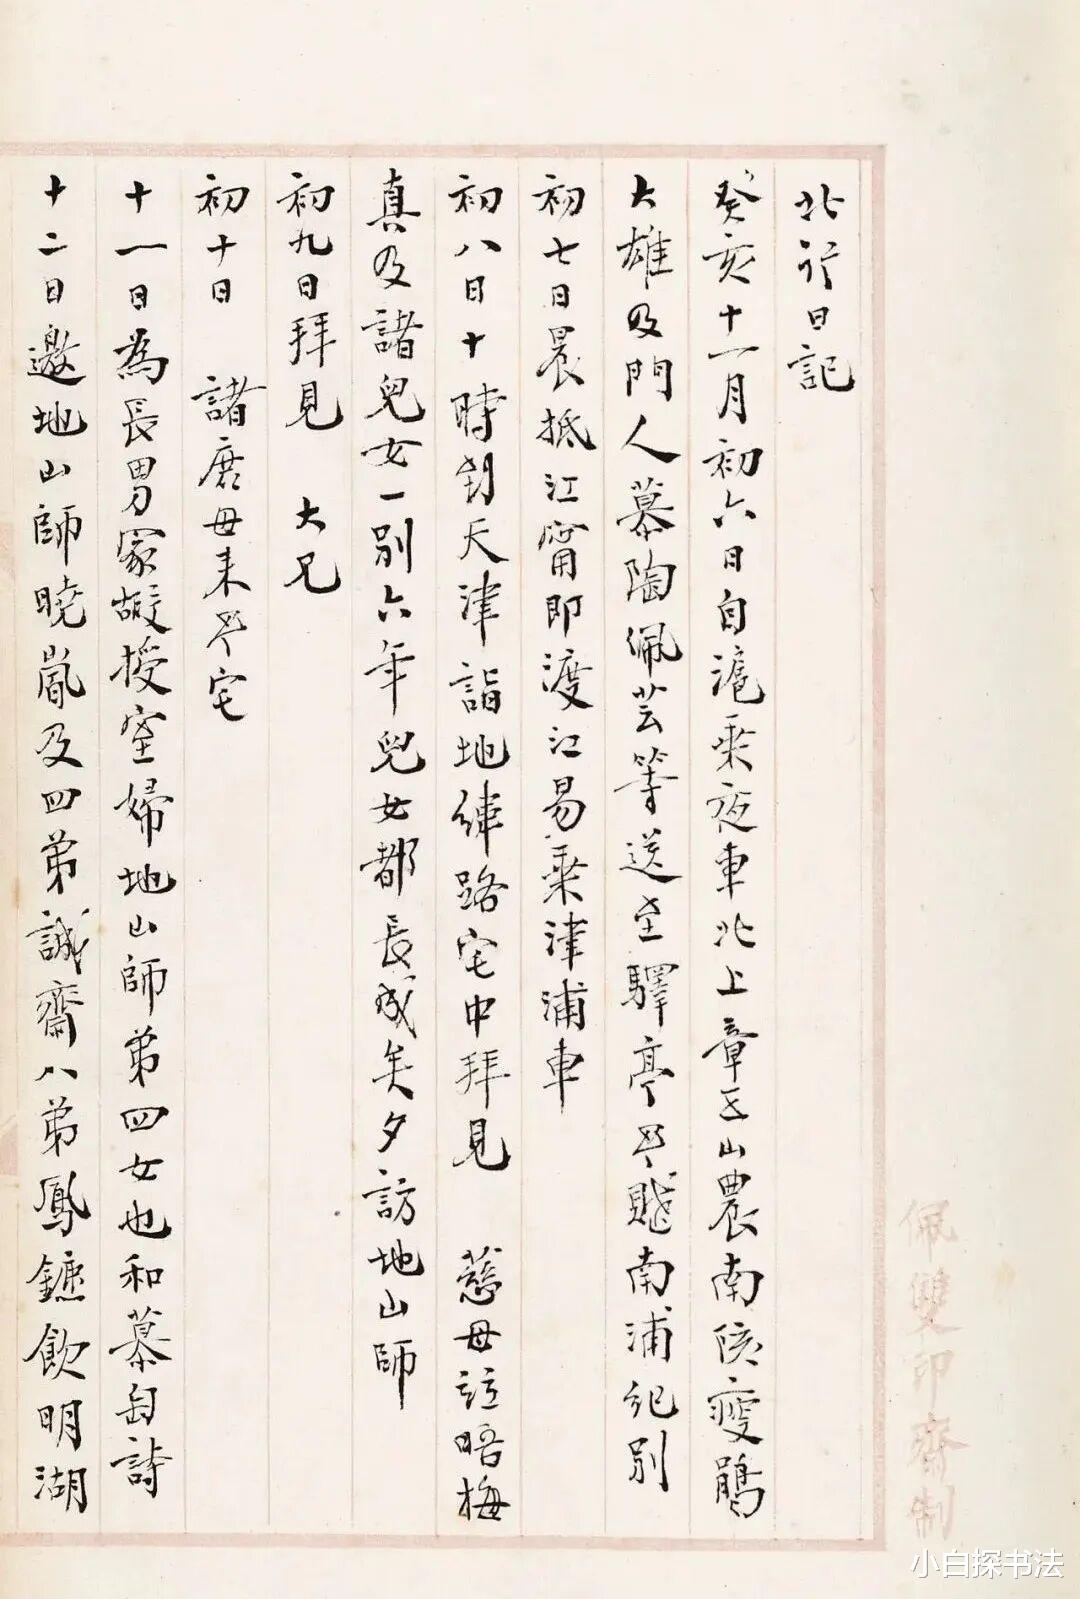 北行日記
癸亥十一月初六日自滬乘夜車北上章玉山農南陔瘦鵑
大雄及門人慕陶佩芸等送至驛亭賦南浦紀別
初七日晨抵江甯即渡江易乘津浦車
初八日十時到天津詣地緯路宅中拜見 慈母並晤梅
真及諸兒女一別六年兒女都長成矣夕訪地山師
初九日拜見 大兄
初十日 諸庶母來宅
十一日為長男家嘏授室婦地山師弟四女也和慕匋詩
十二日邀地山師曉嵐及四弟誠齋八弟鳳鑣飲明湖
佩雙印齋制
小白探书法